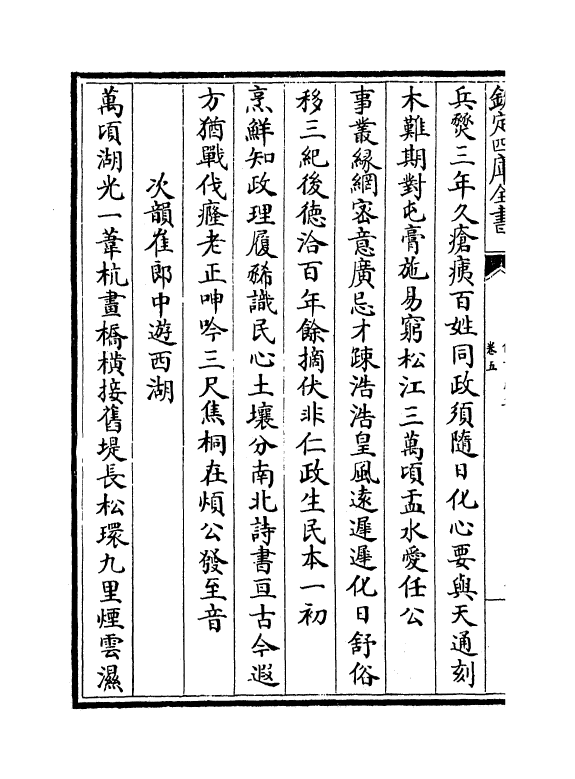 欽定四庫全書
卷五
兵燹三年久瘡痍百姓同政須隨日化心要與天通刻
木難期對屯膏施易窮松江三萬頃盂水愛任公
事叢緣網密意廣忌才踈浩浩皇風遠遲遲化日舒俗
移三紀後徳洽百年餘摘伏非仁政生民本一初
烹鮮知政理履豨識民心土壤分南北詩書亘古今遐
方猶戰伐癃老正呻吟三尺焦桐在煩公發至音
次韻崔郎中遊西湖
萬頃湖光一葦杭畫橋橫接舊堤長松環九里煙雲濕